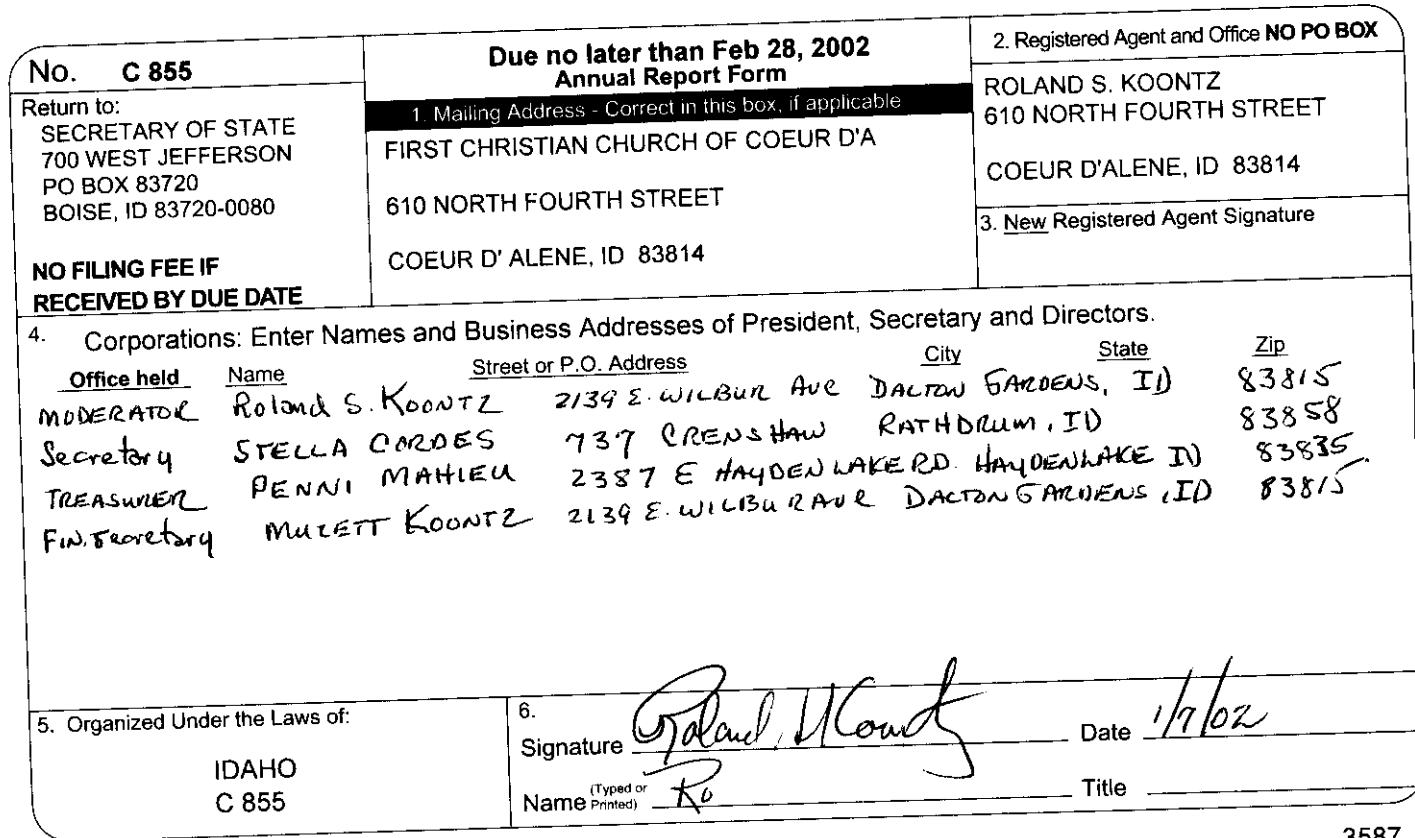 No. C 855
Return to:
SECRETARY OF STATE
700 WEST JEFFERSON
PO BOX 83720
BOISE, ID 83720-0080
NO FILING FEE IF
RECEIVED BY DUE DATE
Due no later than Feb 28, 2002
Annual Report Form
1. Mailing Address - Correct in this box, if applicable
FIRST CHRISTIAN CHURCH OF COEUR D'A
610 NORTH FOURTH STREET
COEUR D' ALENE, ID 83814
2. Registered Agent and Office NO PO BOX
ROLAND S. KOONTZ
610 NORTH FOURTH STREET
COEUR D'ALENE, ID 83814
3. New Registered Agent Signature
4. Corporations: Enter Names and Business Addresses of President, Secretary and Directors.
Office held Name Street or P.O. Address City State Zip
MODERATOR Roland S. KOONTZ 2139 E. WILBUR AVE DALTON GARDENS, ID 83815
Secretary STELLA CORDES 737 CRENSHAW RATHDRUM, ID 83858
TREASURER PENNI MAHIEU 2387 E HAYDEN LAKE RD. HAYDENLAKE ID 83835
FIN. Secretary KOONTZ 2139 E. WILBUR AVE DALTON GARDENS, ID 83815
5. Organized Under the Laws of:
IDAHO
C 855
6.
Signature Roland S Koontz Date 1/7/02
Name (Typed or Printed) Ro Title
3587